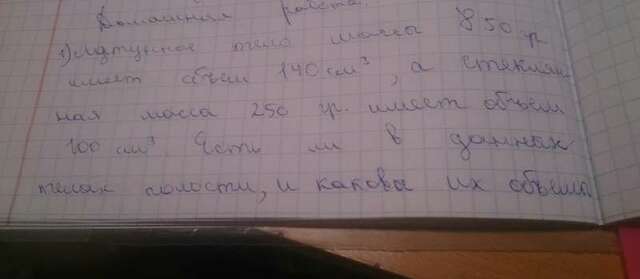 Домашняя работа.
1) Чугунное тело массы 850 гр
имеет объем 140 см³, а стеклян
ная масса 250 гр. имеет объем
100 см³. Есть ли в данных
телах полости, и каковы их объемы